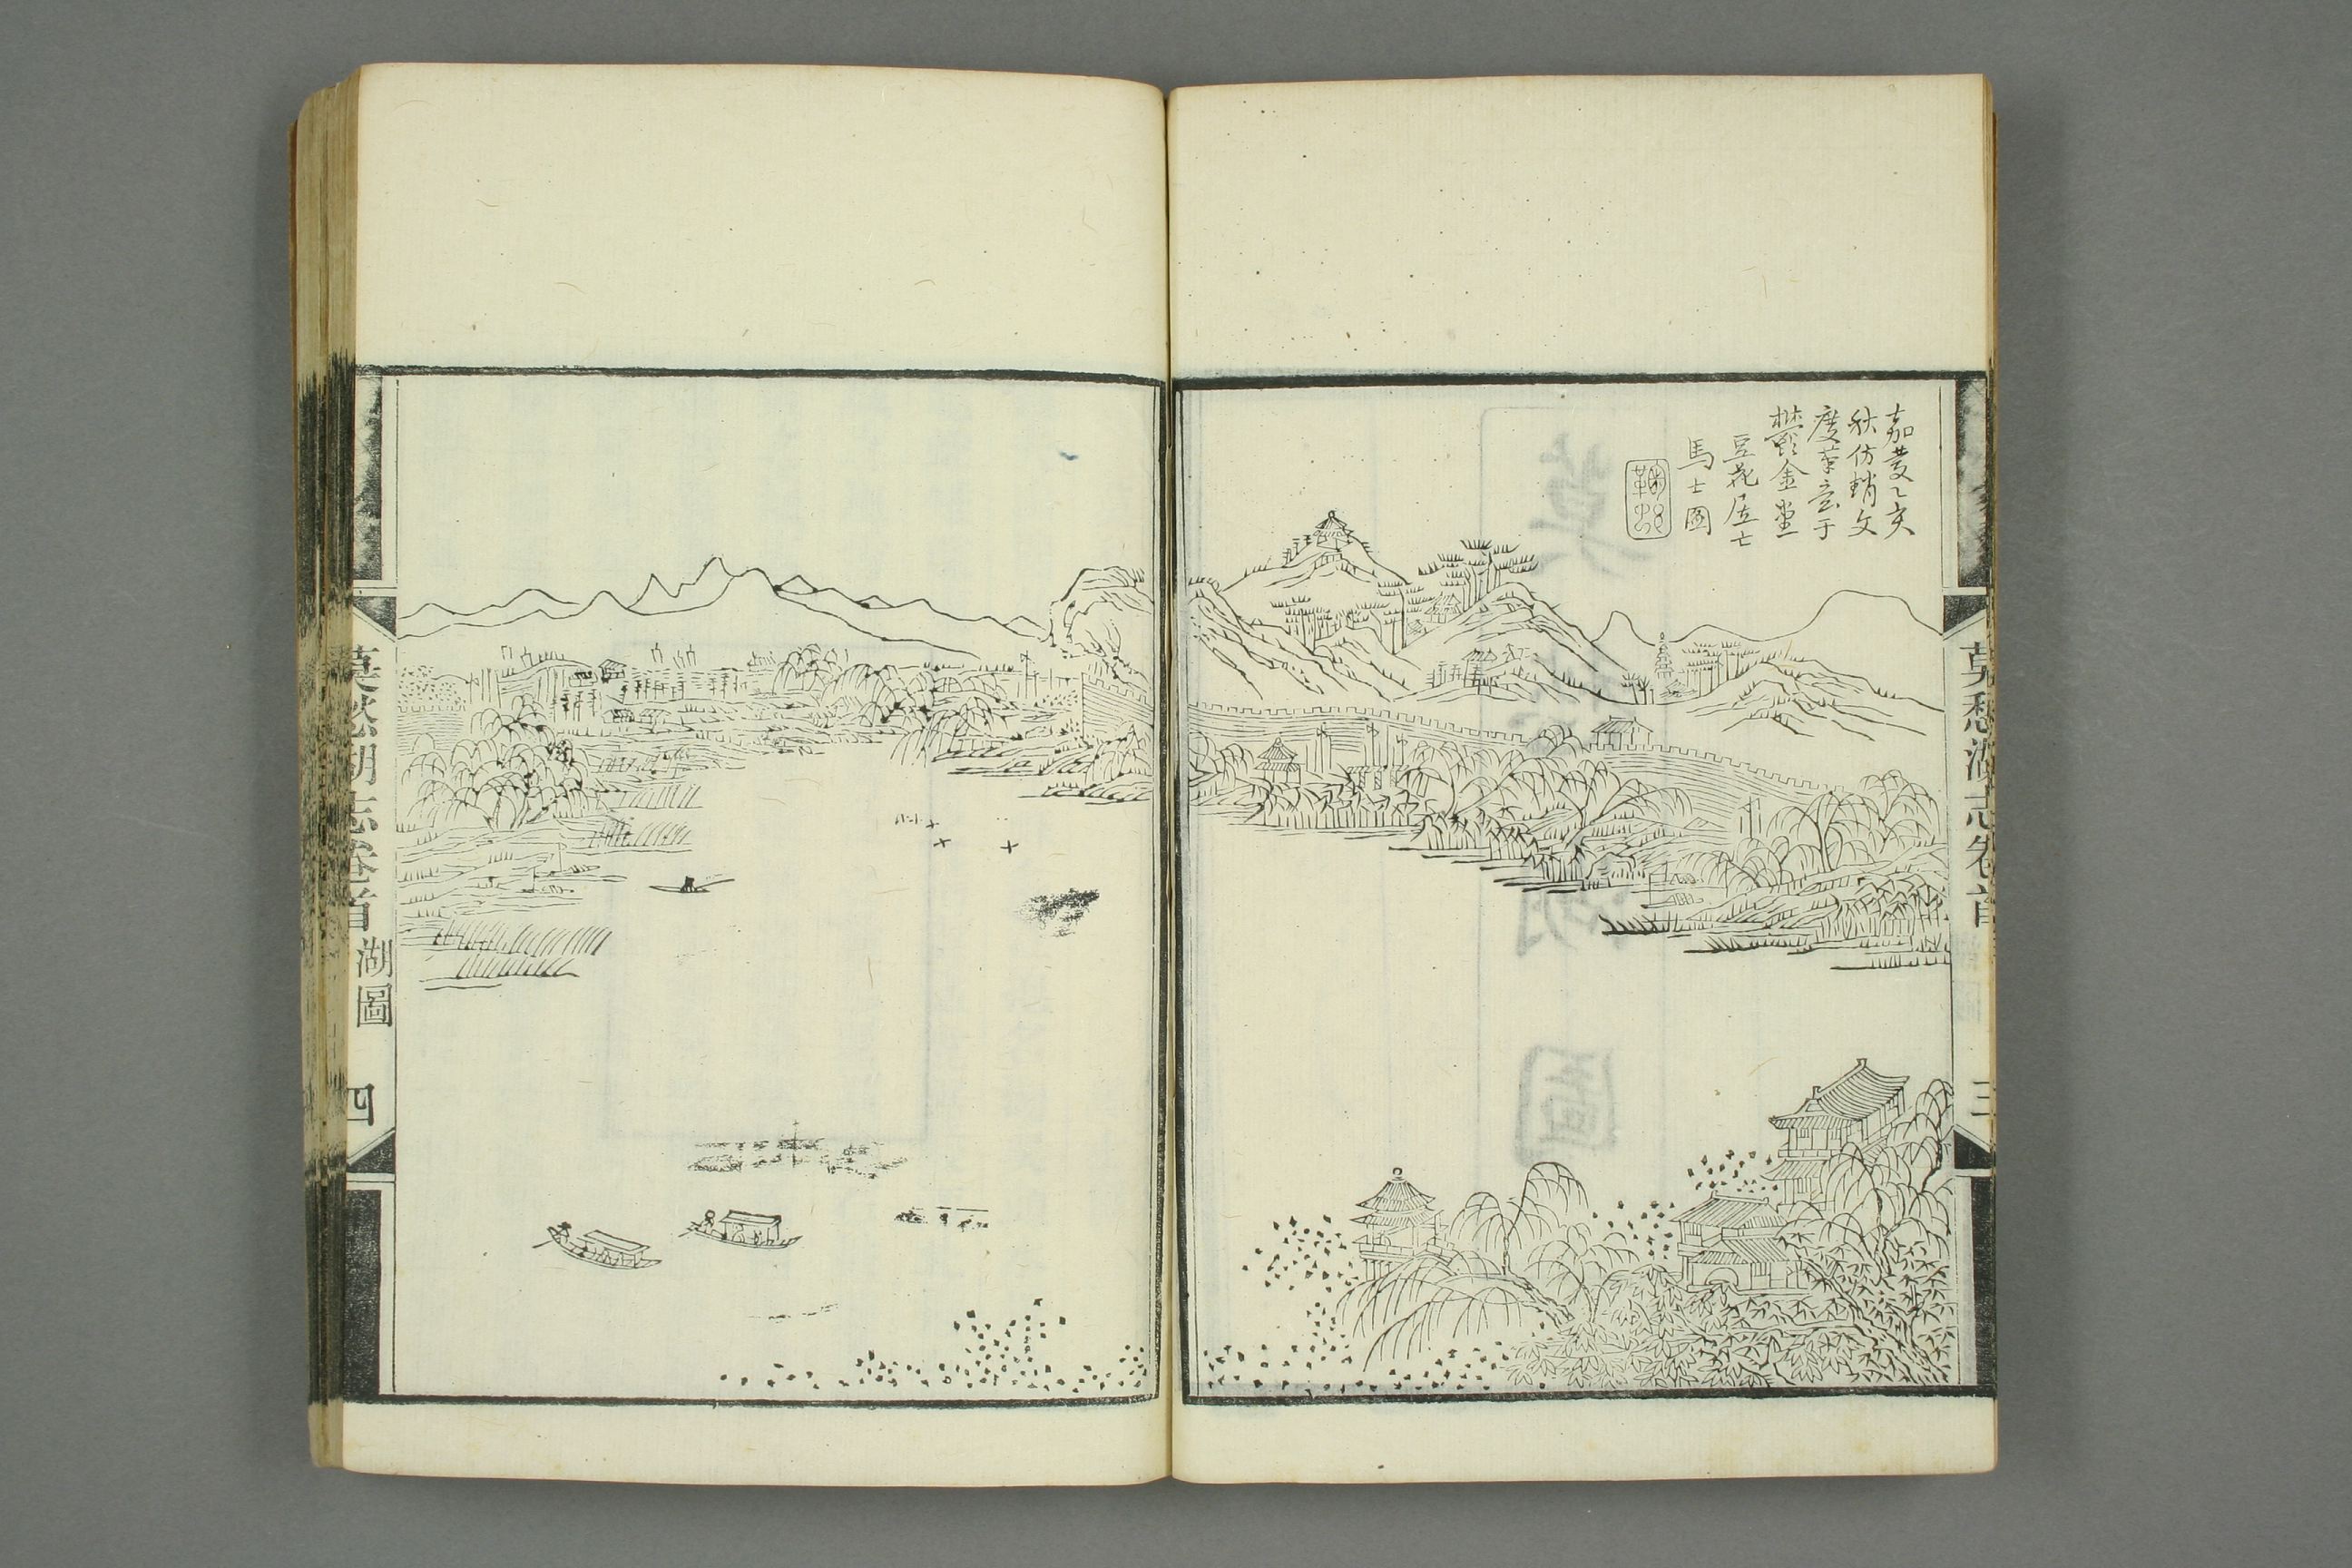 嘉慶乙亥
秋仿蛸文
度筆意于
鬱金堂
豆花居士
馬士圖
莫愁湖志卷首
三
莫愁湖志卷首
湖圖
四